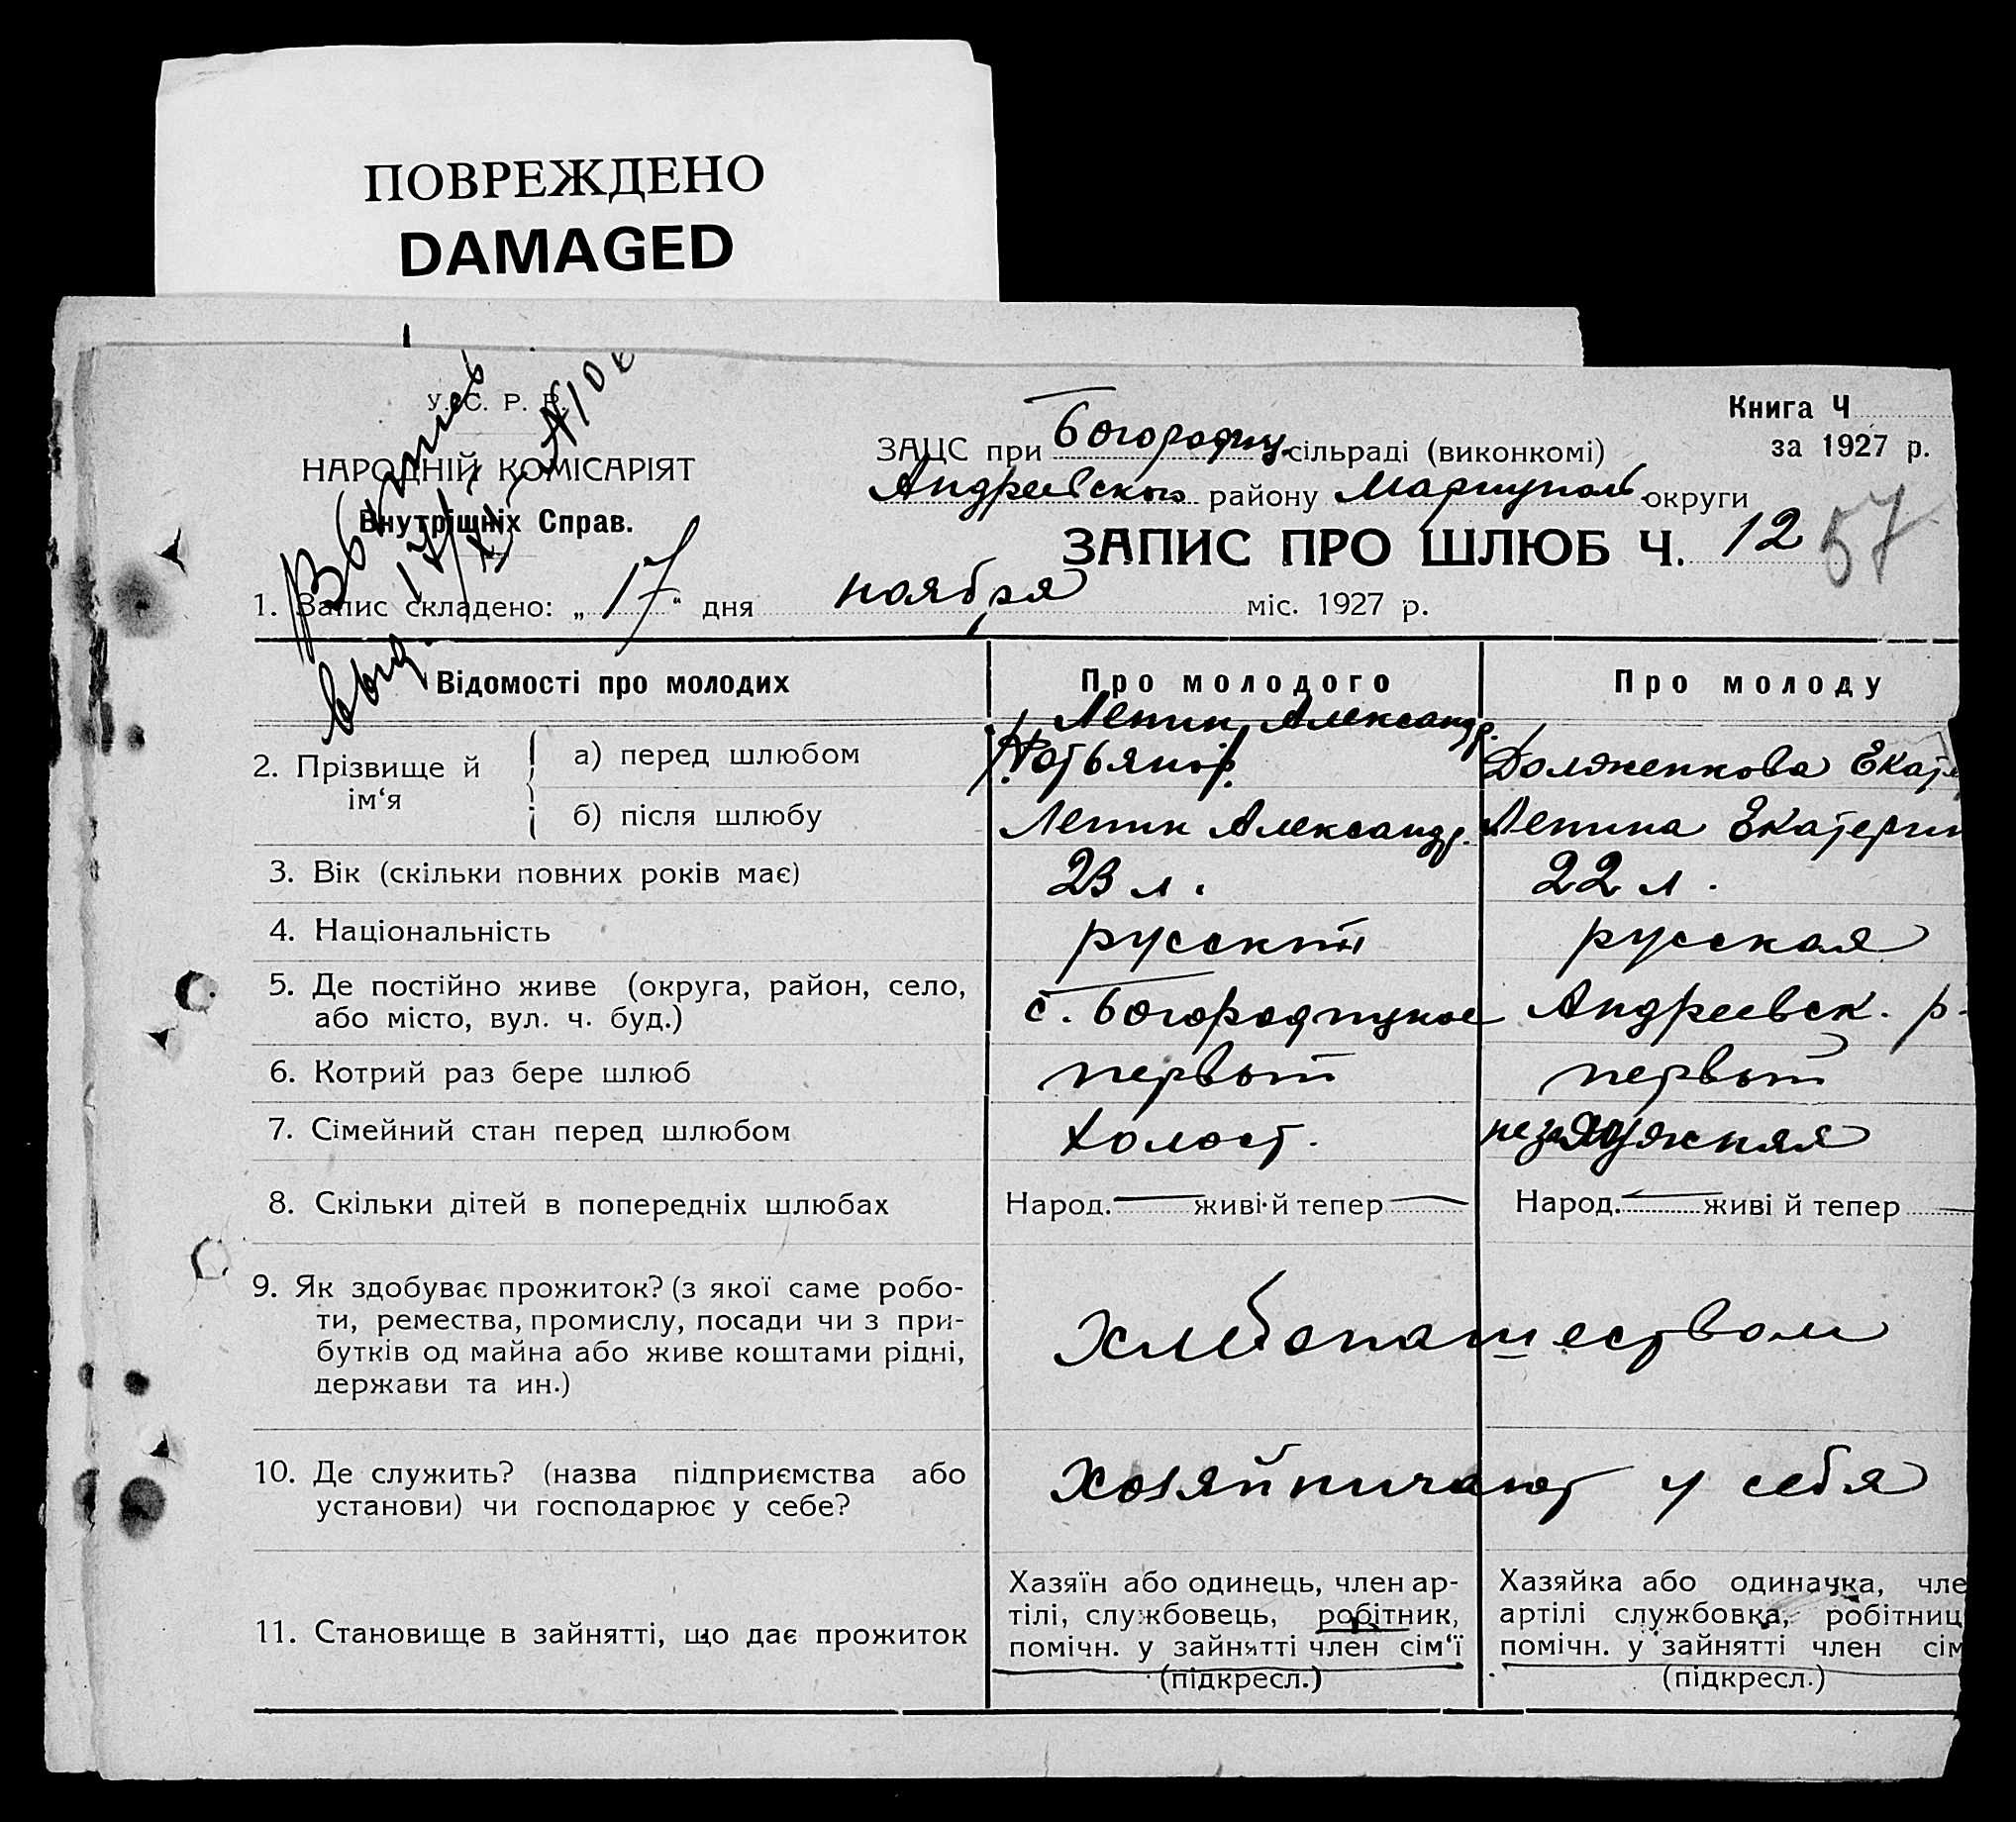 ПОВРЕЖДЕНО
DAMAGED
У. С. Р. Р.
НАРОДНІЙ КОМІСАРІЯТ
Внутрішніх Справ.
Книга Ч
за 1927 р.
ЗАЦС при Богородиц. сільраді (виконкомі)
Андреевского району Мариуполь округи
ЗАПИС ПРО ШЛЮБ Ч. 12 57
1. Запис складено: „ 17 “ дня ноября міс. 1927 р.
Відомості про молодих Про молодого Про молоду
Ленин Александр.
2. Прізвище й ім‘я
а) перед шлюбом Долженкова Екате
б) після шлюбу Ленин Александр. Ленина Екатерин
3. Вік (скільки повних років має) 23 л. 22 л.
4. Національність русский русская
5. Де постійно живе (округа, район, село, або місто, вул. ч. буд.) с. Богородицкое Андреевск. р-
6. Котрий раз бере шлюб первый первый
7. Сімейний стан перед шлюбом холост. незамужняя
8. Скільки дітей в попередніх шлюбах Народ. — живі й тепер — Народ. — живі й тепер —
9. Як здобуває прожиток? (з якої саме робо-
ти, ремества, промислу, посади чи з при-
бутків од майна або живе коштами рідні,
держави та ин.)
Хлебопашеством
10. Де служить? (назва підприємства або
установи) чи господарює у себе?
Хозяйничают у себя
11. Становище в зайнятті, що дає прожиток
Хазяїн або одинець, член ар-
тілі, службовець, робітник,
помічн. у зайнятті член сім‘ї
(підкресл.)
Хазяйка або одиначка, чле
артілі службовка, робітниц
помічн. у зайнятті член сім
(підкресл.)